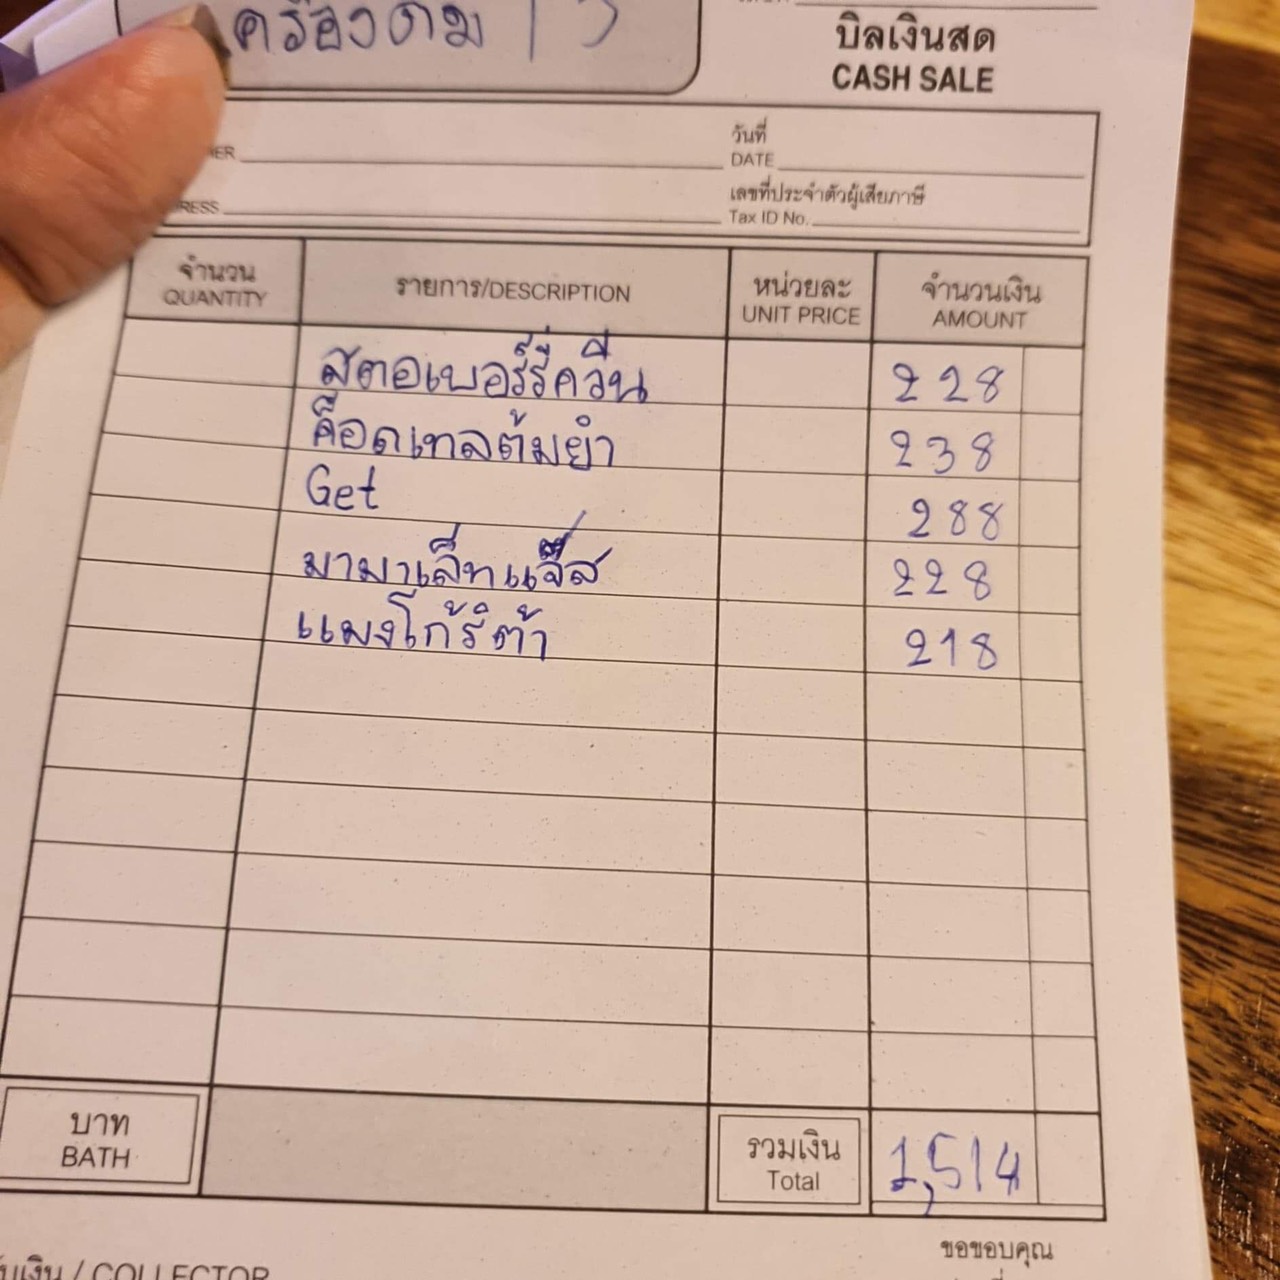 เครื่องดื่ม
บิลเงินสด
CASH SALE
วันที่
DATE
เลขที่ประจำตัวผู้เสียภาษี
Tax ID No.
จำนวน
QUANTITY
รายการ/DESCRIPTION
หน่วยละ
UNIT PRICE
จำนวนเงิน
AMOUNT
สตอเบอร์รี่ควีน 228
ค็อดเทลต้มยำ 238
Get 288
มามาเล็ทแจ๊ส 228
แมงโก้ริต้า 218
บาท
BATH
รวมเงิน
Total
1,514
ขอขอบคุณ
COLLECTOR